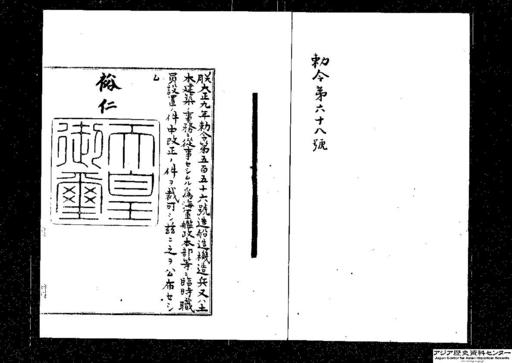 勅令第六十八號
朕大正九年勅令第五百五十六號造船造機造兵又ハ土
木建築ノ事務ニ從事セシムル爲海軍艦政本部等ニ臨時職
員設置ノ件中改正ノ件ヲ裁可シ玆ニ之ヲ公布セシ
ム
裕仁
天皇
御璽
アジア歴史資料センター
Japan Center for Asian Historical Records